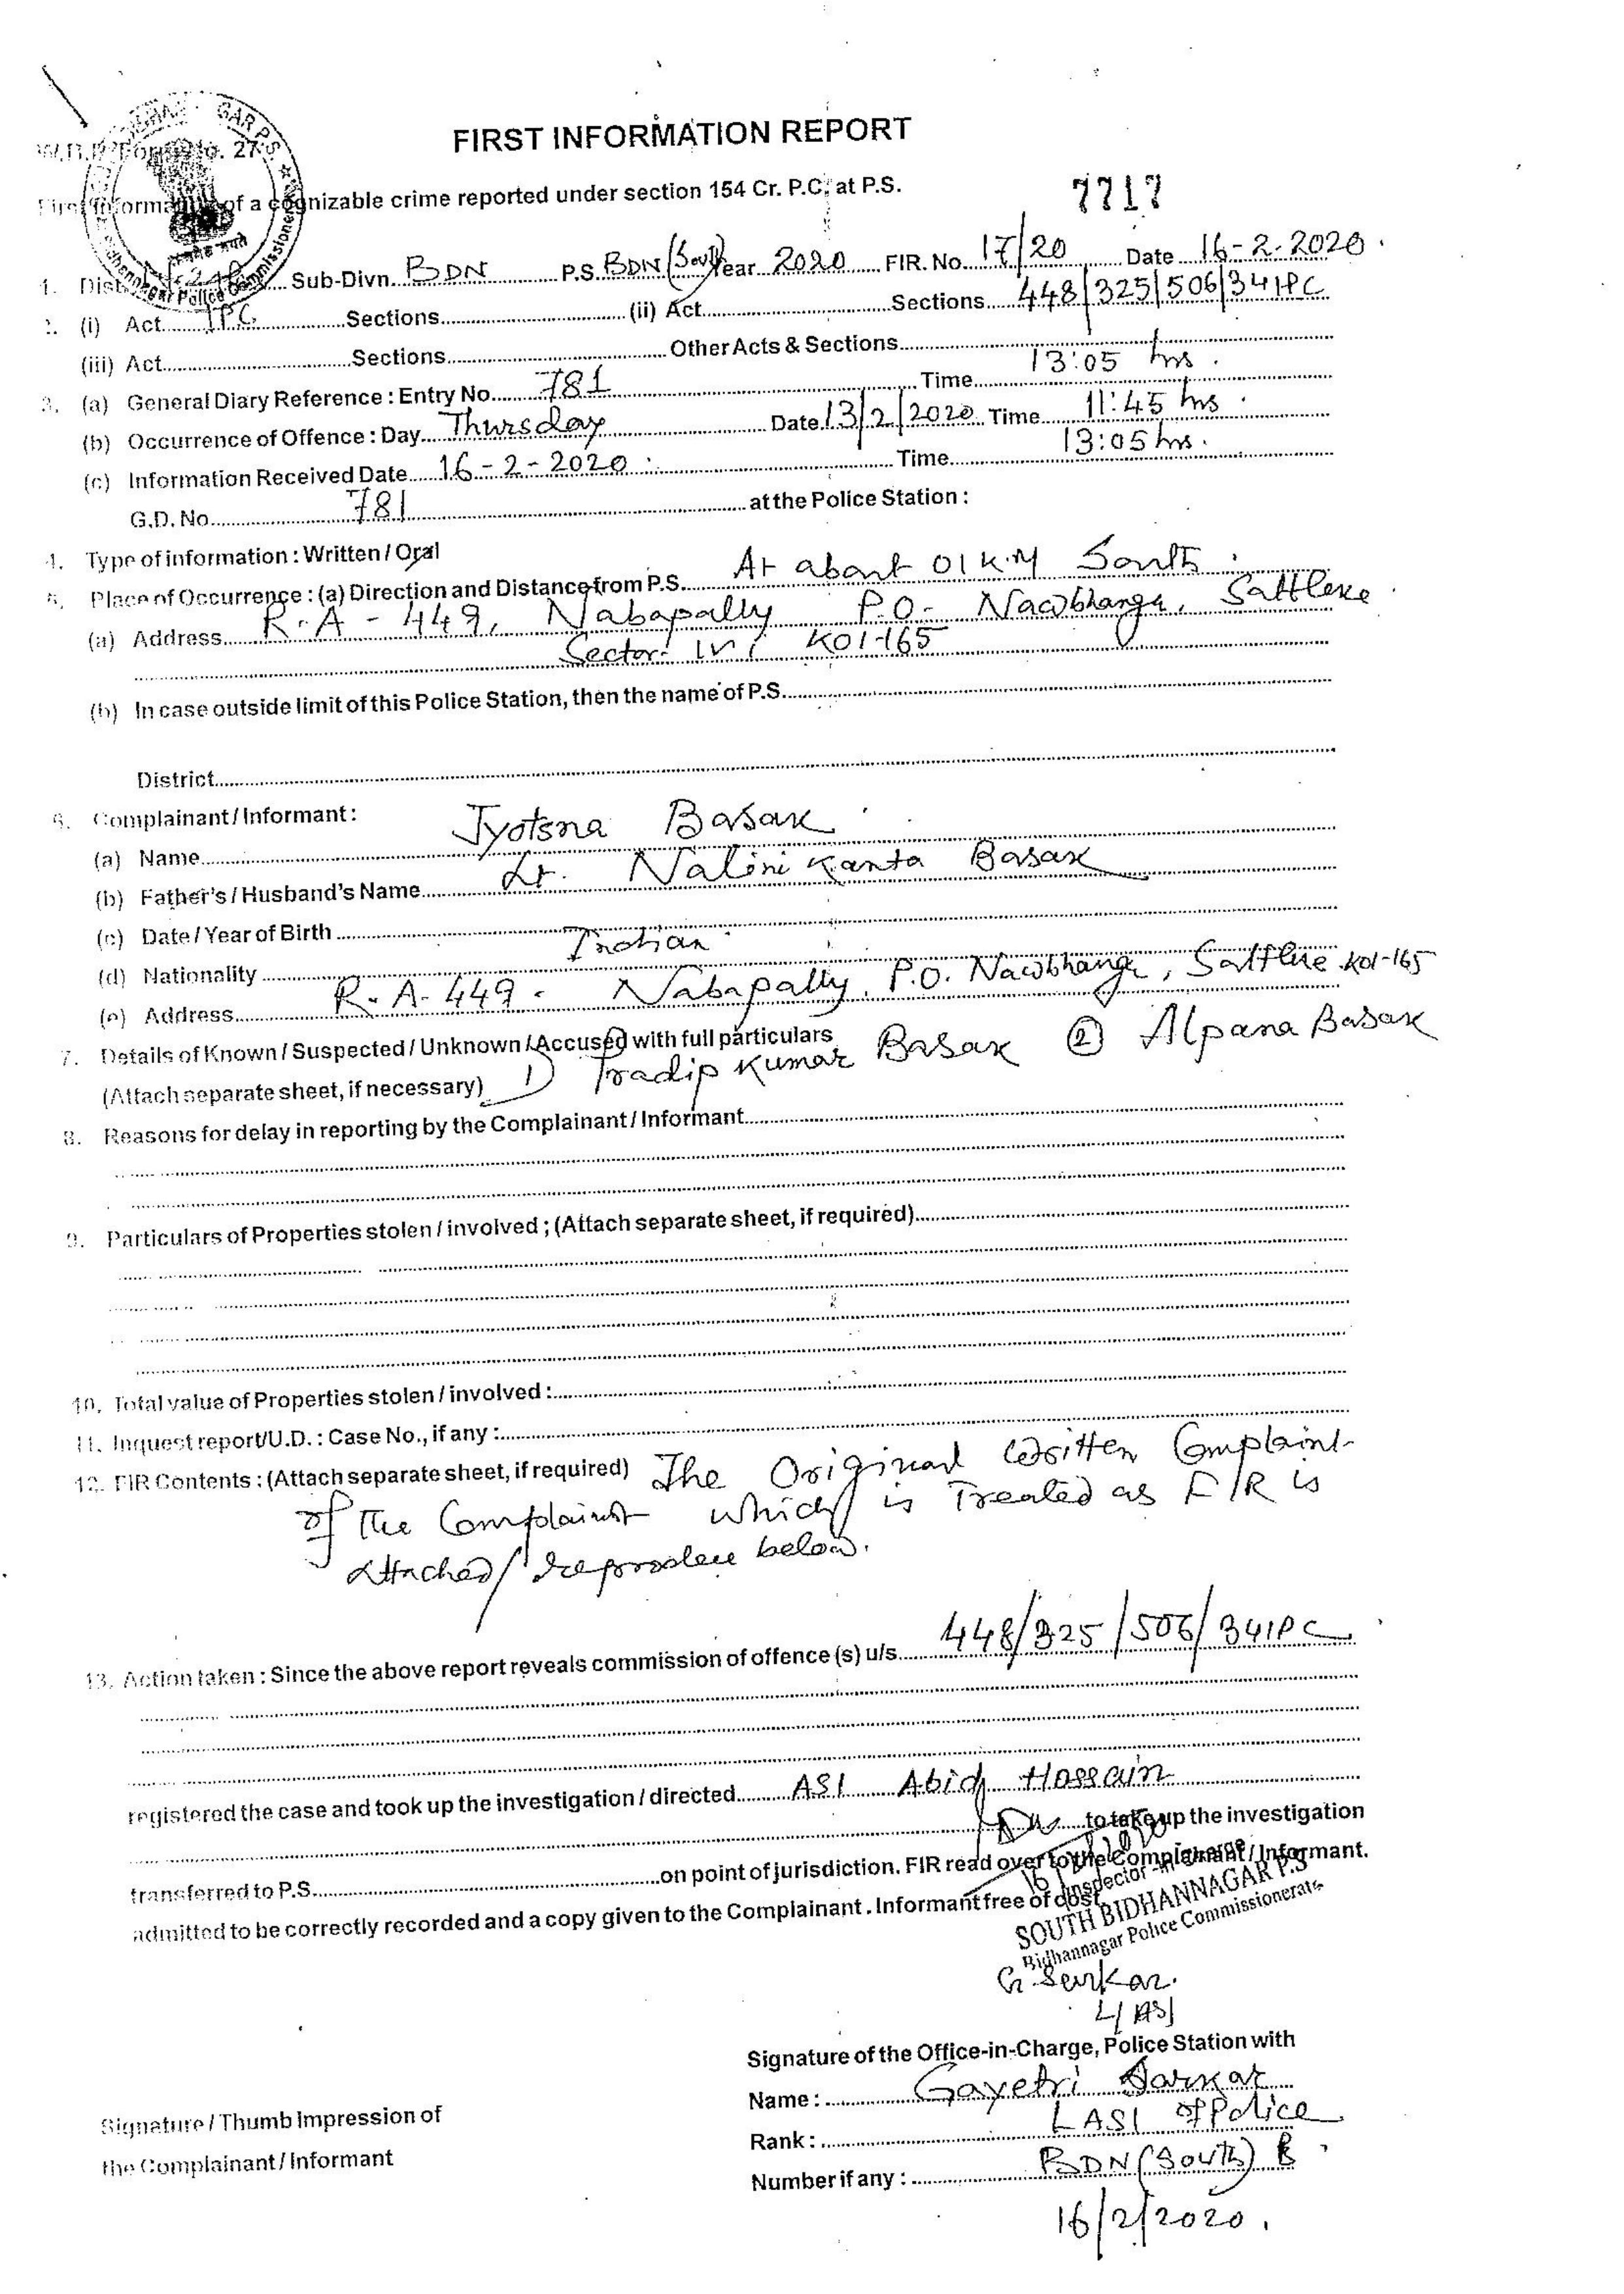 FIRST INFORMATION REPORT
W.B.P. Form No. 27
First Information of a cognizable crime reported under section 154 Cr. P.C. at P.S.
7717
1. Dist. Sub-Divn. BDN P.S. BDN (South) Year 2020 FIR. No. 17/20 Date 16-2-2020.
2. (i) Act IPC Sections (ii) Act Sections 448/325/506/34 IPC
(iii) Act Sections Other Acts & Sections
3. (a) General Diary Reference : Entry No. 781 Time 13:05 hrs.
(b) Occurrence of Offence : Day Thursday Date 13/2/2020 Time 11:45 hrs.
(c) Information Received Date 16-2-2020 Time 13:05 hrs.
G.D. No. 781 at the Police Station :
4. Type of information : Written / Oral
5. Place of Occurrence : (a) Direction and Distance from P.S. At about 01 K.M South.
(a) Address R.A - 449, Nabapally P.O- Nawbhanga, Saltlake
Sector- IV, Kol-165
(b) In case outside limit of this Police Station, then the name of P.S.
District
6. Complainant / Informant :
(a) Name Jyotsna Basak
(b) Father's / Husband's Name Lt. Nalini Kanta Basak
(c) Date / Year of Birth
(d) Nationality Indian
(e) Address R.A-449. Nabapally, P.O. Nawbhanga, Saltlake Kol-165
7. Details of Known / Suspected / Unknown / Accused with full particulars
(Attach separate sheet, if necessary) 1) Pradip Kumar Basak 2) Alpana Basak
8. Reasons for delay in reporting by the Complainant / Informant
9. Particulars of Properties stolen / involved ; (Attach separate sheet, if required)
10. Total value of Properties stolen / involved :
11. Inquest report/U.D. : Case No., if any :
12. FIR Contents : (Attach separate sheet, if required) The Original Written Complaint
of the Complainant which is Treated as FIR is
attached/ below.
13. Action taken : Since the above report reveals commission of offence (s) u/s 448/325/506/34 IPC
registered the case and took up the investigation / directed ASI Abid Hossain
to take up the investigation
transferred to P.S. on point of jurisdiction. FIR read over to the Complainant / Informant.
admitted to be correctly recorded and a copy given to the Complainant . Informant free of cost.
Inspector-in-Charge
SOUTH BIDHANNAGAR P.S
Bidhannagar Police Commissionerate
G. Sarkar.
L/ASI
Signature of the Office-in-Charge, Police Station with
Name : Gayetri Sarkar
Signature / Thumb Impression of
Rank : LASI of Police
the Complainant / Informant
Number if any : BDN (South)
16/2/2020.